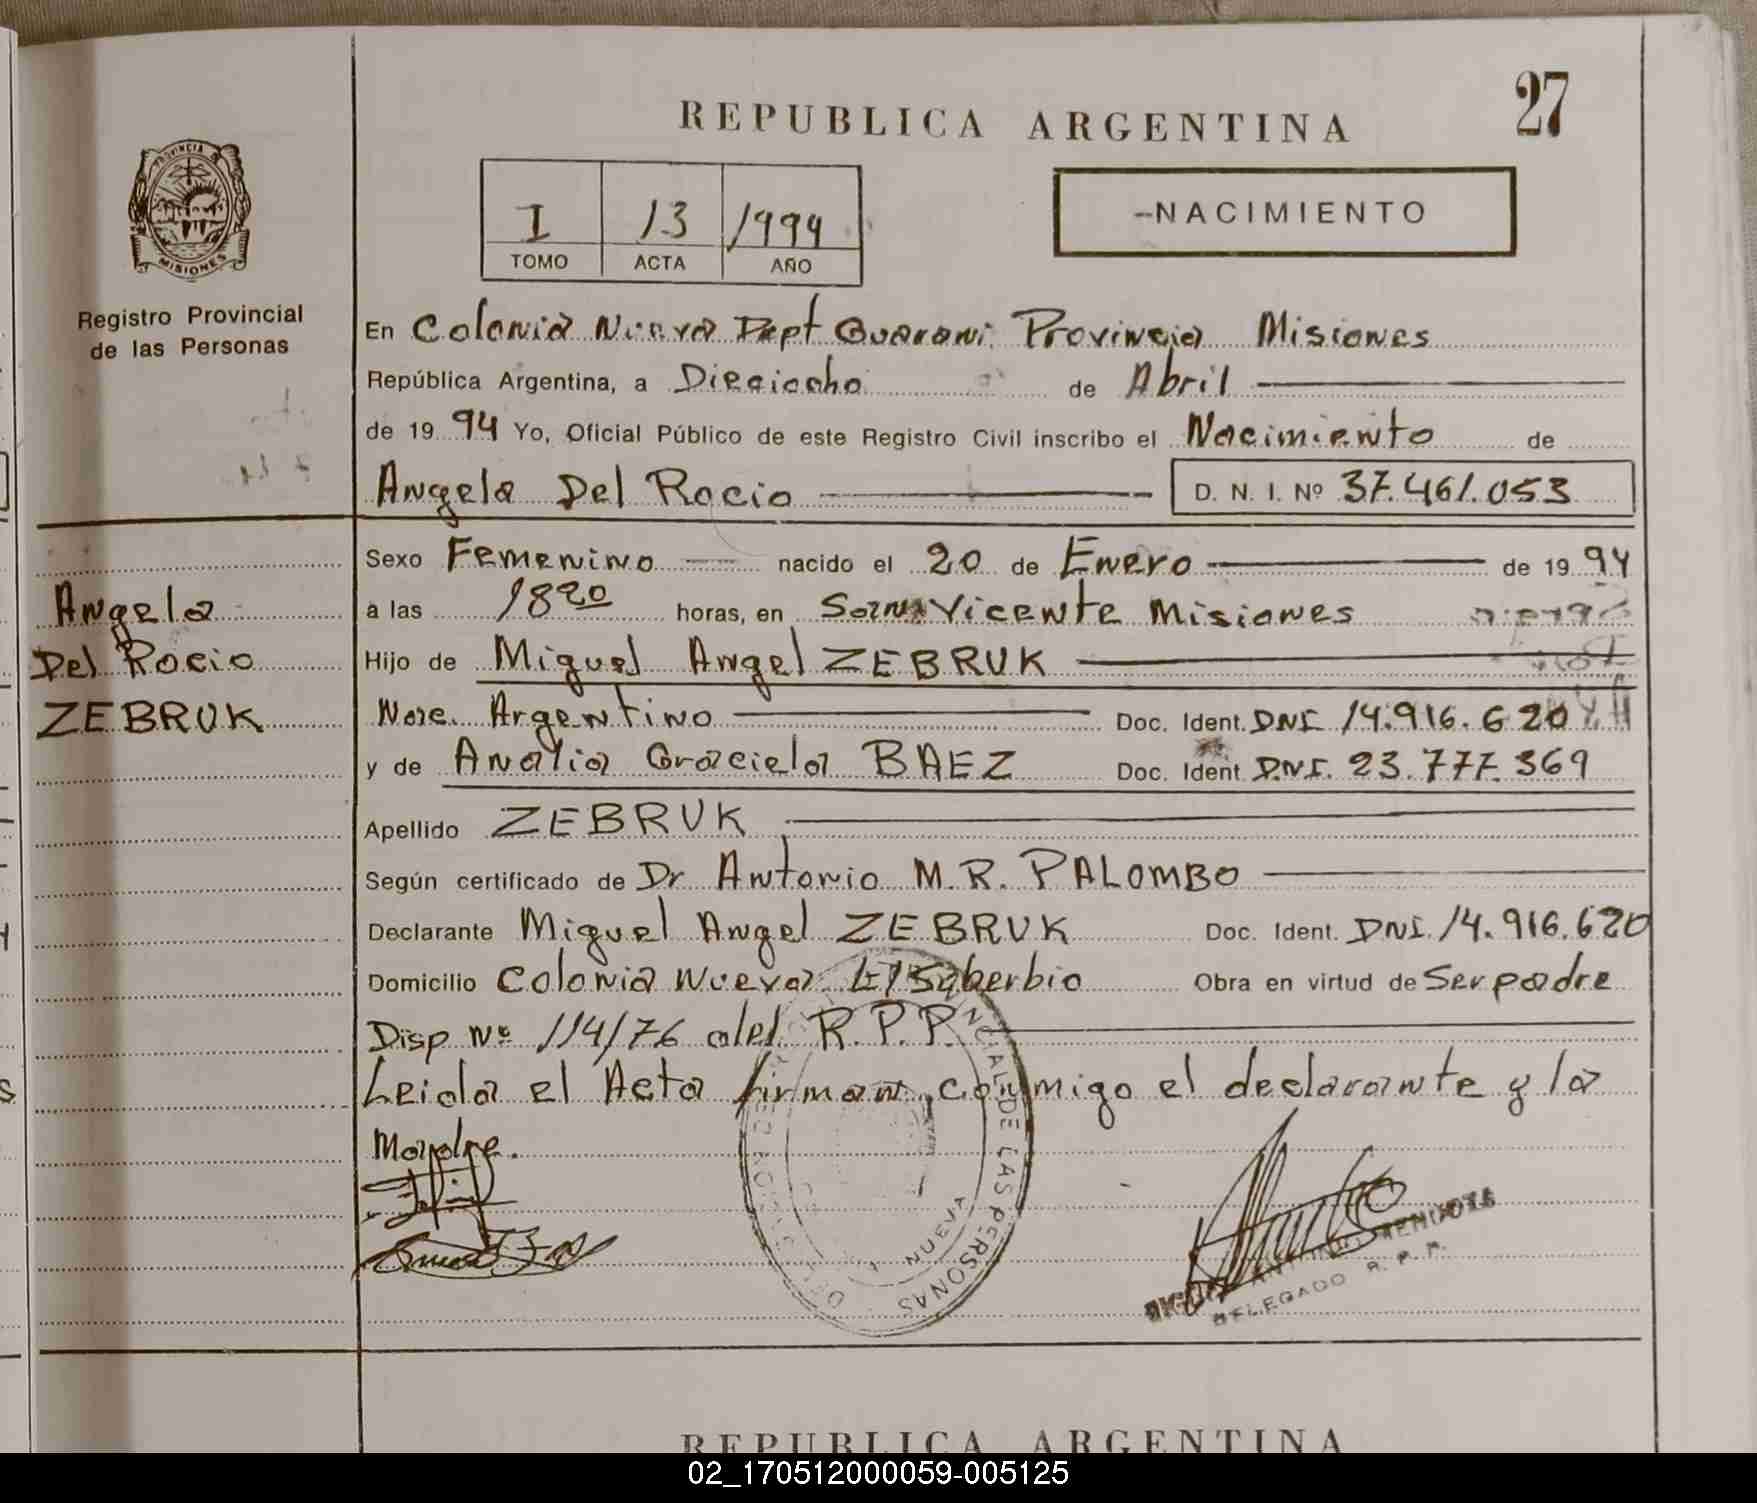 27
REPUBLICA ARGENTINA
I 13 1994
TOMO ACTA AÑO
-NACIMIENTO
PROVINCIA D
MISIONES
Registro Provincial
de las Personas
En Colonia Nueva Dept Guarani Provincia Misiones
República Argentina, a Dieciocho de Abril
de 19 94 Yo, Oficial Público de este Registro Civil inscribo el Nacimiento de
Angela Del Rocio D. N. I. Nº 37.461.053
Angela
Del Rocio
ZEBRUK
Sexo Femenino nacido el 20 de Enero de 19 94
a las 18 20 horas, en San Vicente Misiones
Hijo de Miguel Angel ZEBRUK
Argentino Doc. Ident. DNI 14.916.620
y de Analia Graciela BAEZ Doc. Ident. D.N.I. 23.777.369
Apellido ZEBRUK
Según certificado de Dr Antonio M.R. PALOMBO
Declarante Miguel Angel ZEBRUK Doc. Ident. DNI. 14.916.620
Domicilio Colonia Nueva El Soberbio Obra en virtud de Ser padre
Disp Nº 114/76 del R.P.P.
Leida el Acta firman conmigo el declarante y la
Madre.
NCIAL DE LAS PERSONAS
NUEVA
MENDOZA
DELEGADO R. P. P.
REPUBLICA ARGENTINA
02_170512000059-005125